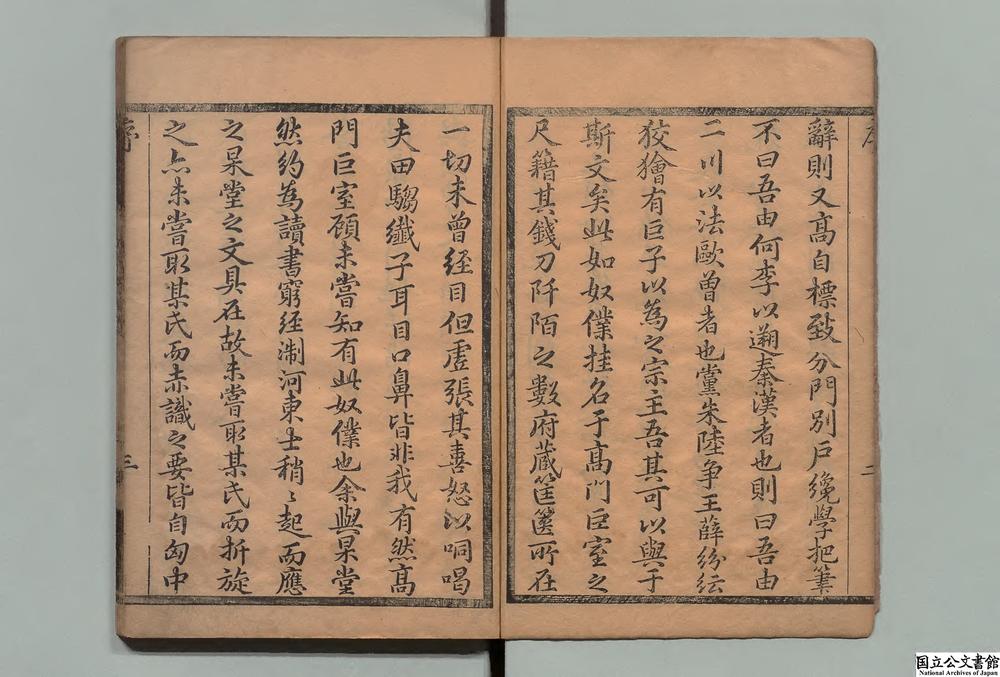 辭則又高自標致分門別戶纔學把筆
不曰吾由何李以遡秦漢者也則曰吾由
二川以法歐曾者也黨朱陸爭王薛紛紜
狡獪有巨子以為之宗主吾其可以與于
斯文矣此如奴僕挂名于高門巨室之
尺籍其錢刀阡陌之數府藏筐篋所在
一切未曾經目但虛張其喜怒以哃喝
夫田騶纖子耳目口鼻皆非我有然高
門巨室顧未嘗知有此奴僕也余與杲堂
然約為讀書窮經淛河東士稍〻起而應
之杲堂之文具在故未嘗取某氏而折旋
之亦未嘗取某氏而赤識之要皆自匈中
序
三
二
国立公文書館
National Archives of Japan